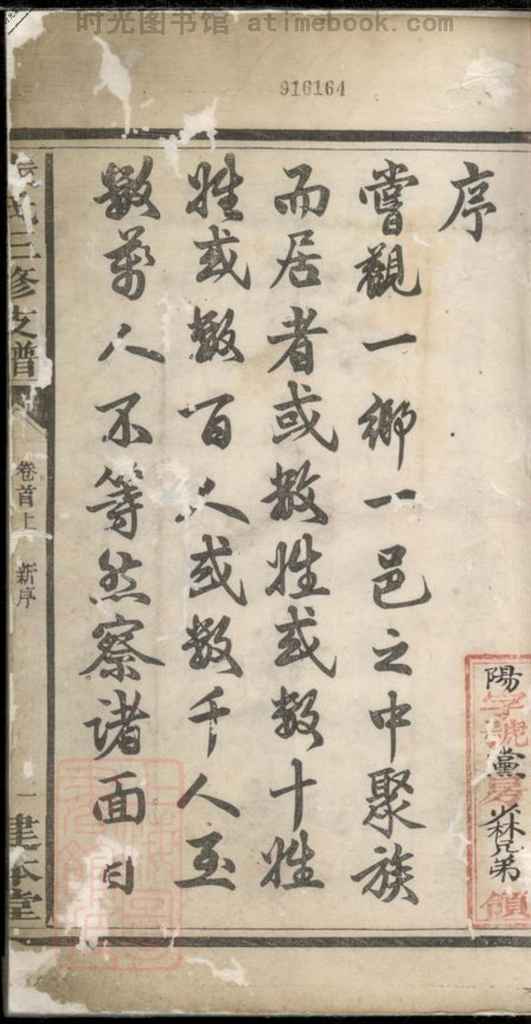 时光图书馆 - atimebook.com
916164
序
嘗觀一鄉一邑之中聚族
而居者或数姓或数十姓
姓或数百人或数千人至
数萬人不等然察諸面目
氏三修支譜
卷首上
新序
一
建本堂
陽 黨 森兄弟
字號 房 領